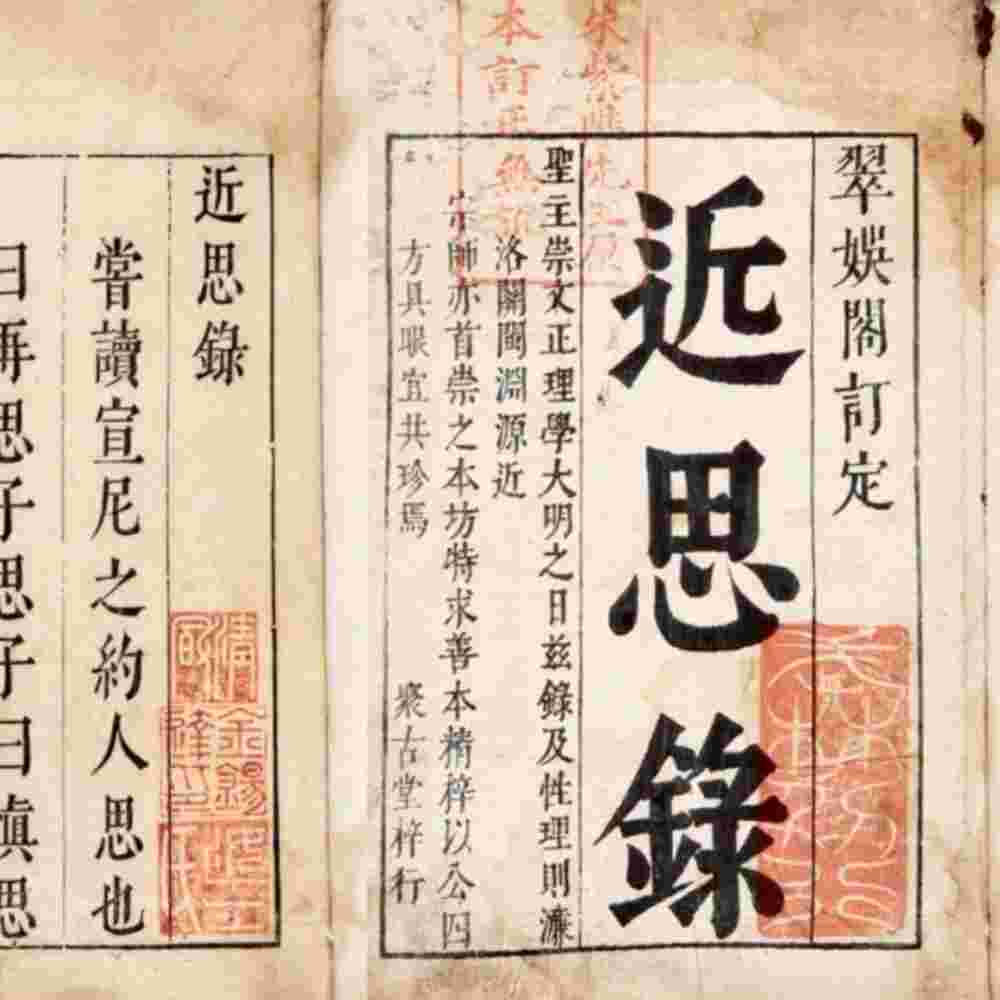 翠娛閣訂定
近思錄
聖主崇文正理學大明之日玆錄及性理則濂
洛關閩淵源近
宗師亦首崇之本坊特求善本精梓以公四
方具眼宜共珍焉
聚古堂梓行
本訂正無訛
近思錄
嘗讀宣尼之約人思也
曰再思子思子曰慎思